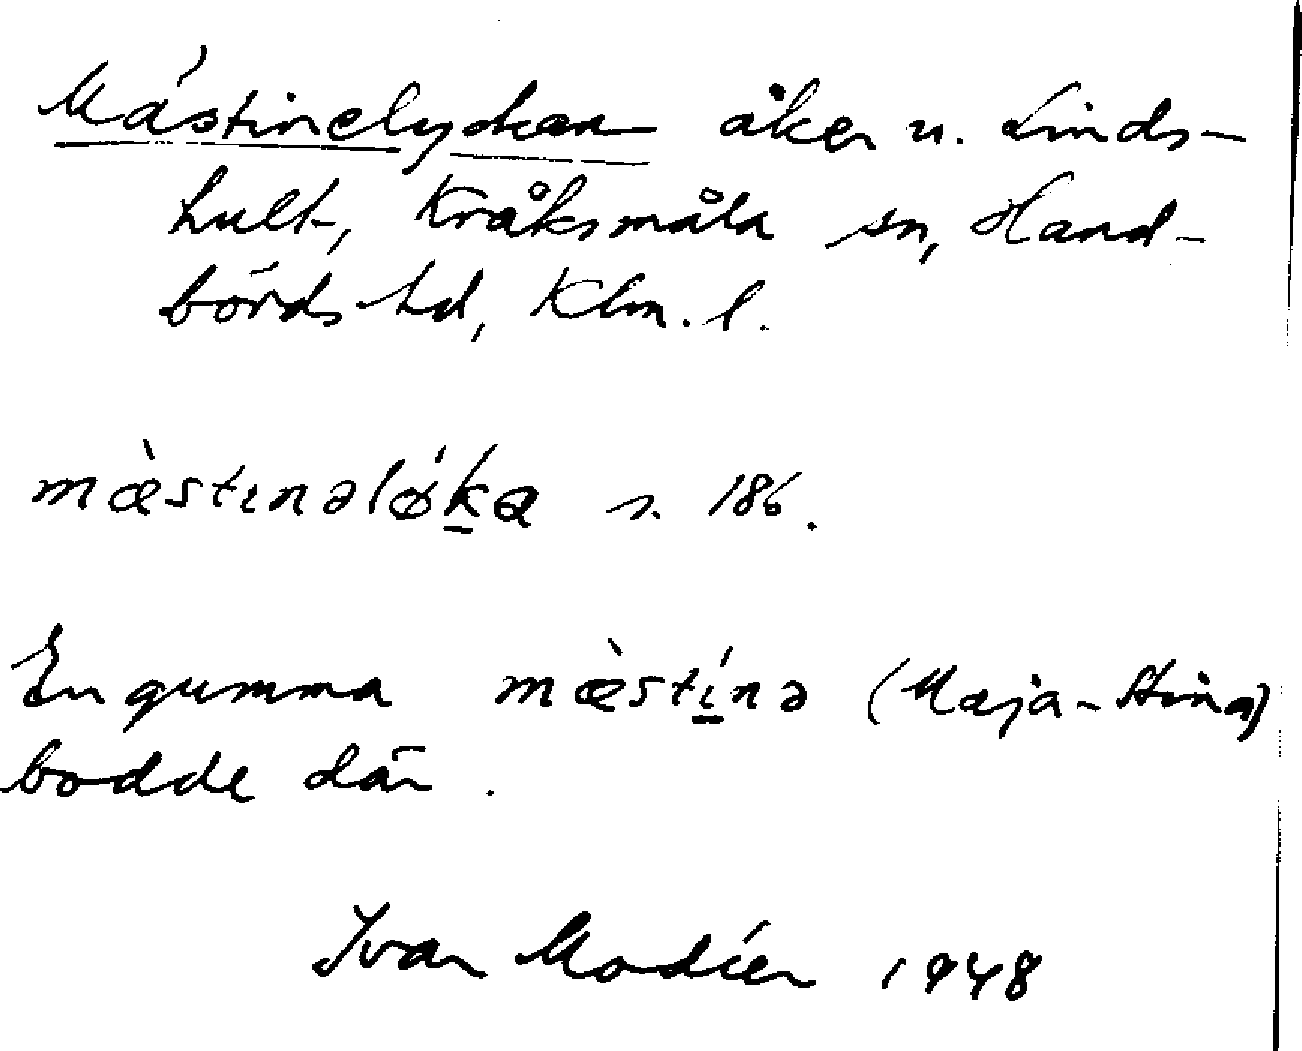 Mästinelyckan åker u. Linds-
hult, Kråksmåla sn, Hand-
börds hd, Klm. l.
mæ̀stɩnəlǿḵa s. 186.
En gumma mæ̀stɩ̱́nə (Maja-Stina)
bodde där.
Ivar Modéer 1948